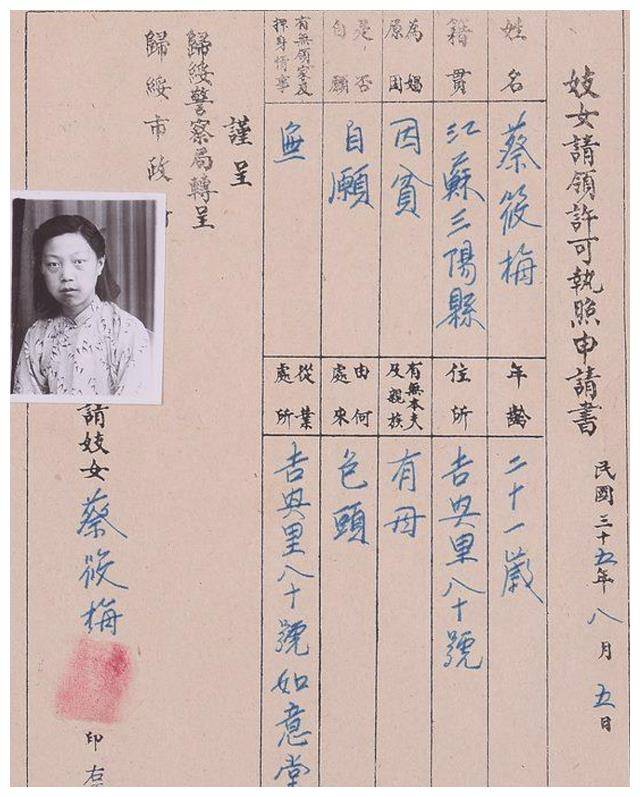 妓女請領許可執照申請書
民國三十五年八月五日
姓名 蔡筱梅
年齡 二十一歲
籍貫 江蘇三陽縣
住所 吉興里八十號
為娼原因 因貧
有無本夫及親族 有母
是否自願 自願
由何處來 包頭
有無領家及押身情事 無
從業處所 吉興里八十號如意堂
謹呈
歸綏警察局轉呈
歸綏市政
請妓女 蔡筱梅
印